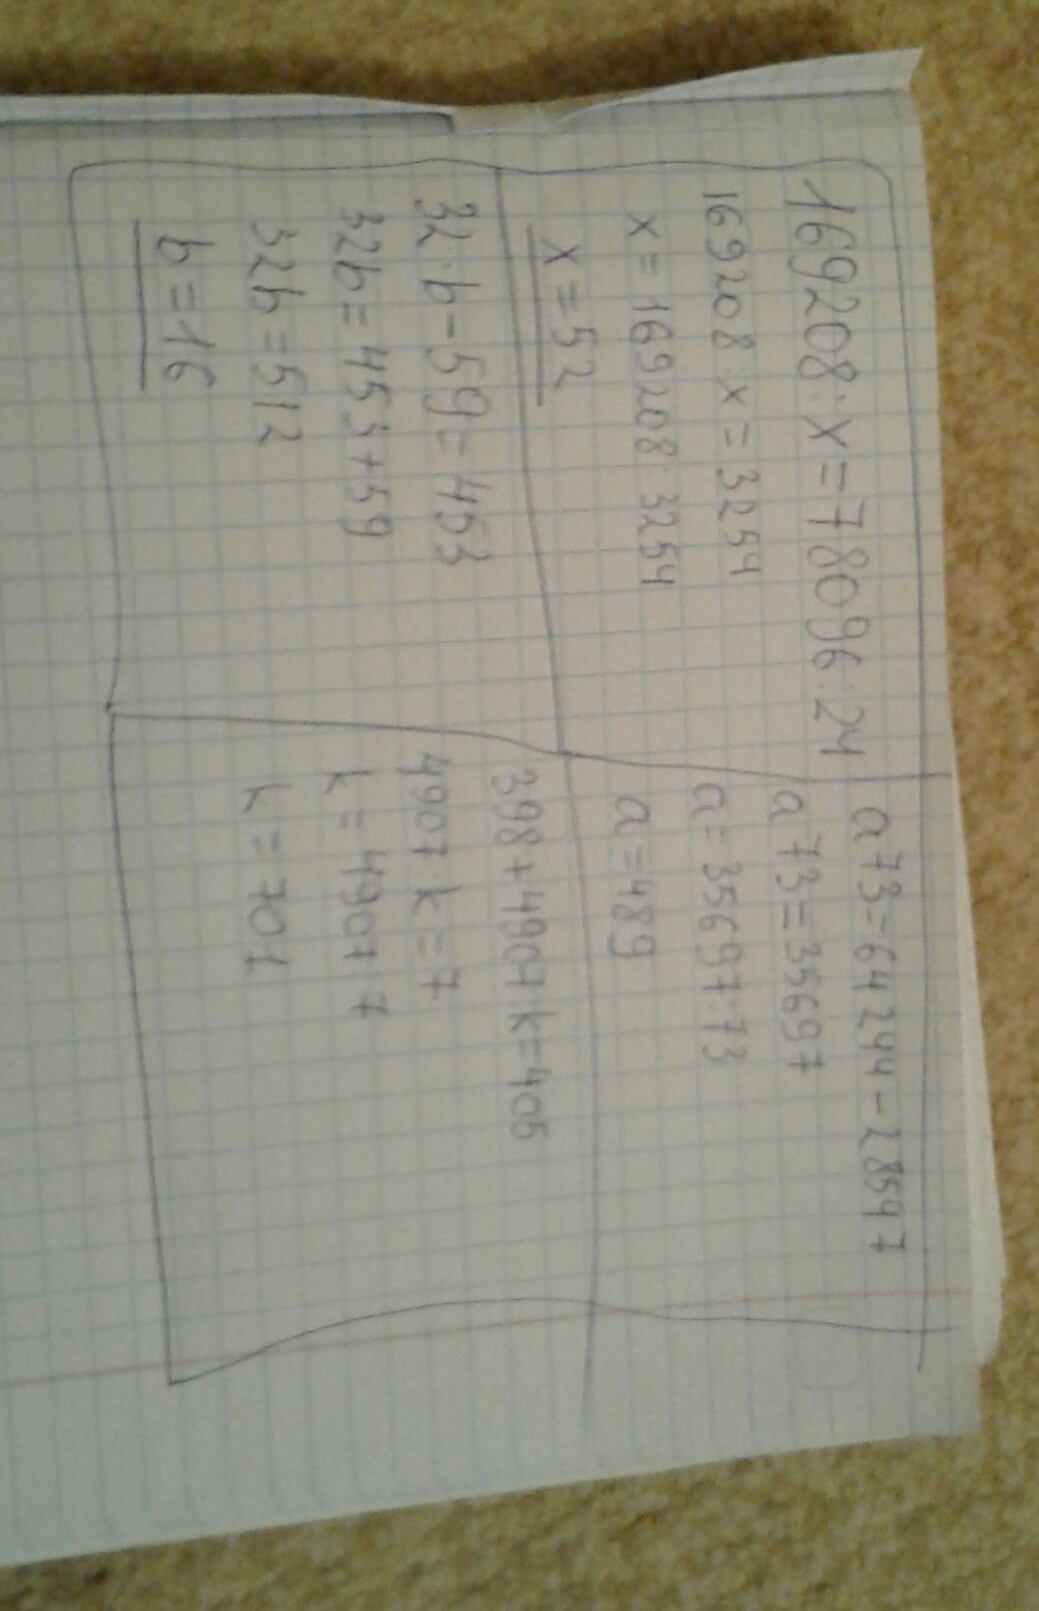 169208:x=78096:24
169208:x=3254
x=169208:3254
x=52
a·73=64244-28547
a·73=35697
a=35697:73
a=489
32·b-59=453
32b=453+59
32b=512
b=16
398+4907:k=405
4907:k=7
k=4907:7
k=701